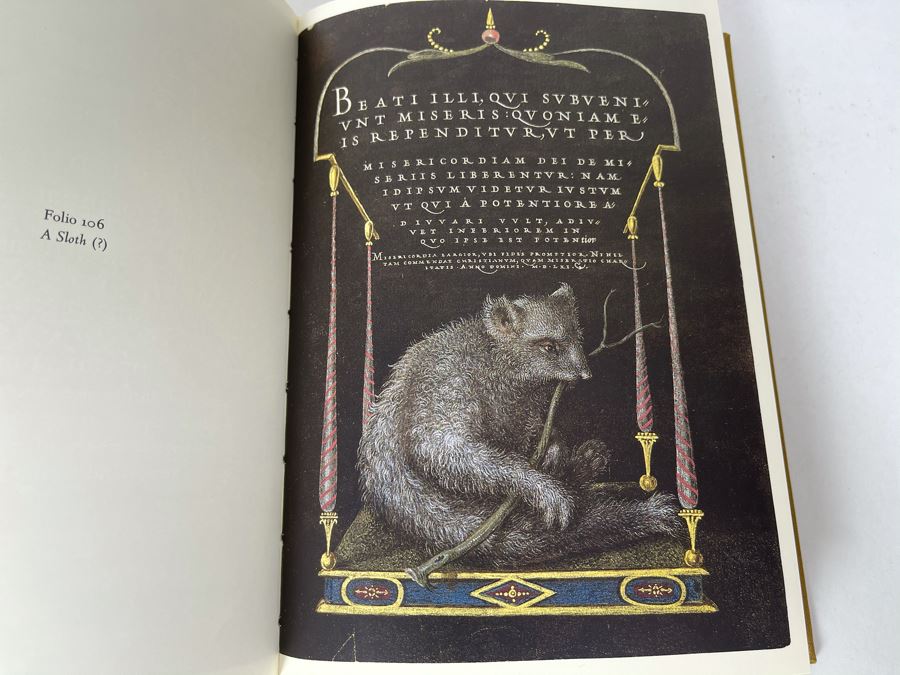 Folio 106
A Sloth (?)
BEATI ILLI, QVI SVBVENI⸗
VNT MISERIS: QVONIAM E⸗
IS REPENDITVR, VT PER
MISERICORDIAM DEI DE MI⸗
SERIIS LIBERENTVR: NAM
IDIPSVM VIDETVR IVSTVM
VT QVI À POTENTIORE A⸗
DIVVARI VVLT, ADIV⸗
VET INFERIOREM IN
QVO IPSE EST POTENtior
MISERICORDIA LARGIOR, VBI FIDES PROMPTIOR. NIHIL
TAM COMMENDAT CHRISTIANVM, QVAM MISERATIO CHARI
TATIS. ANNO DOMINI. M.D.LXI.